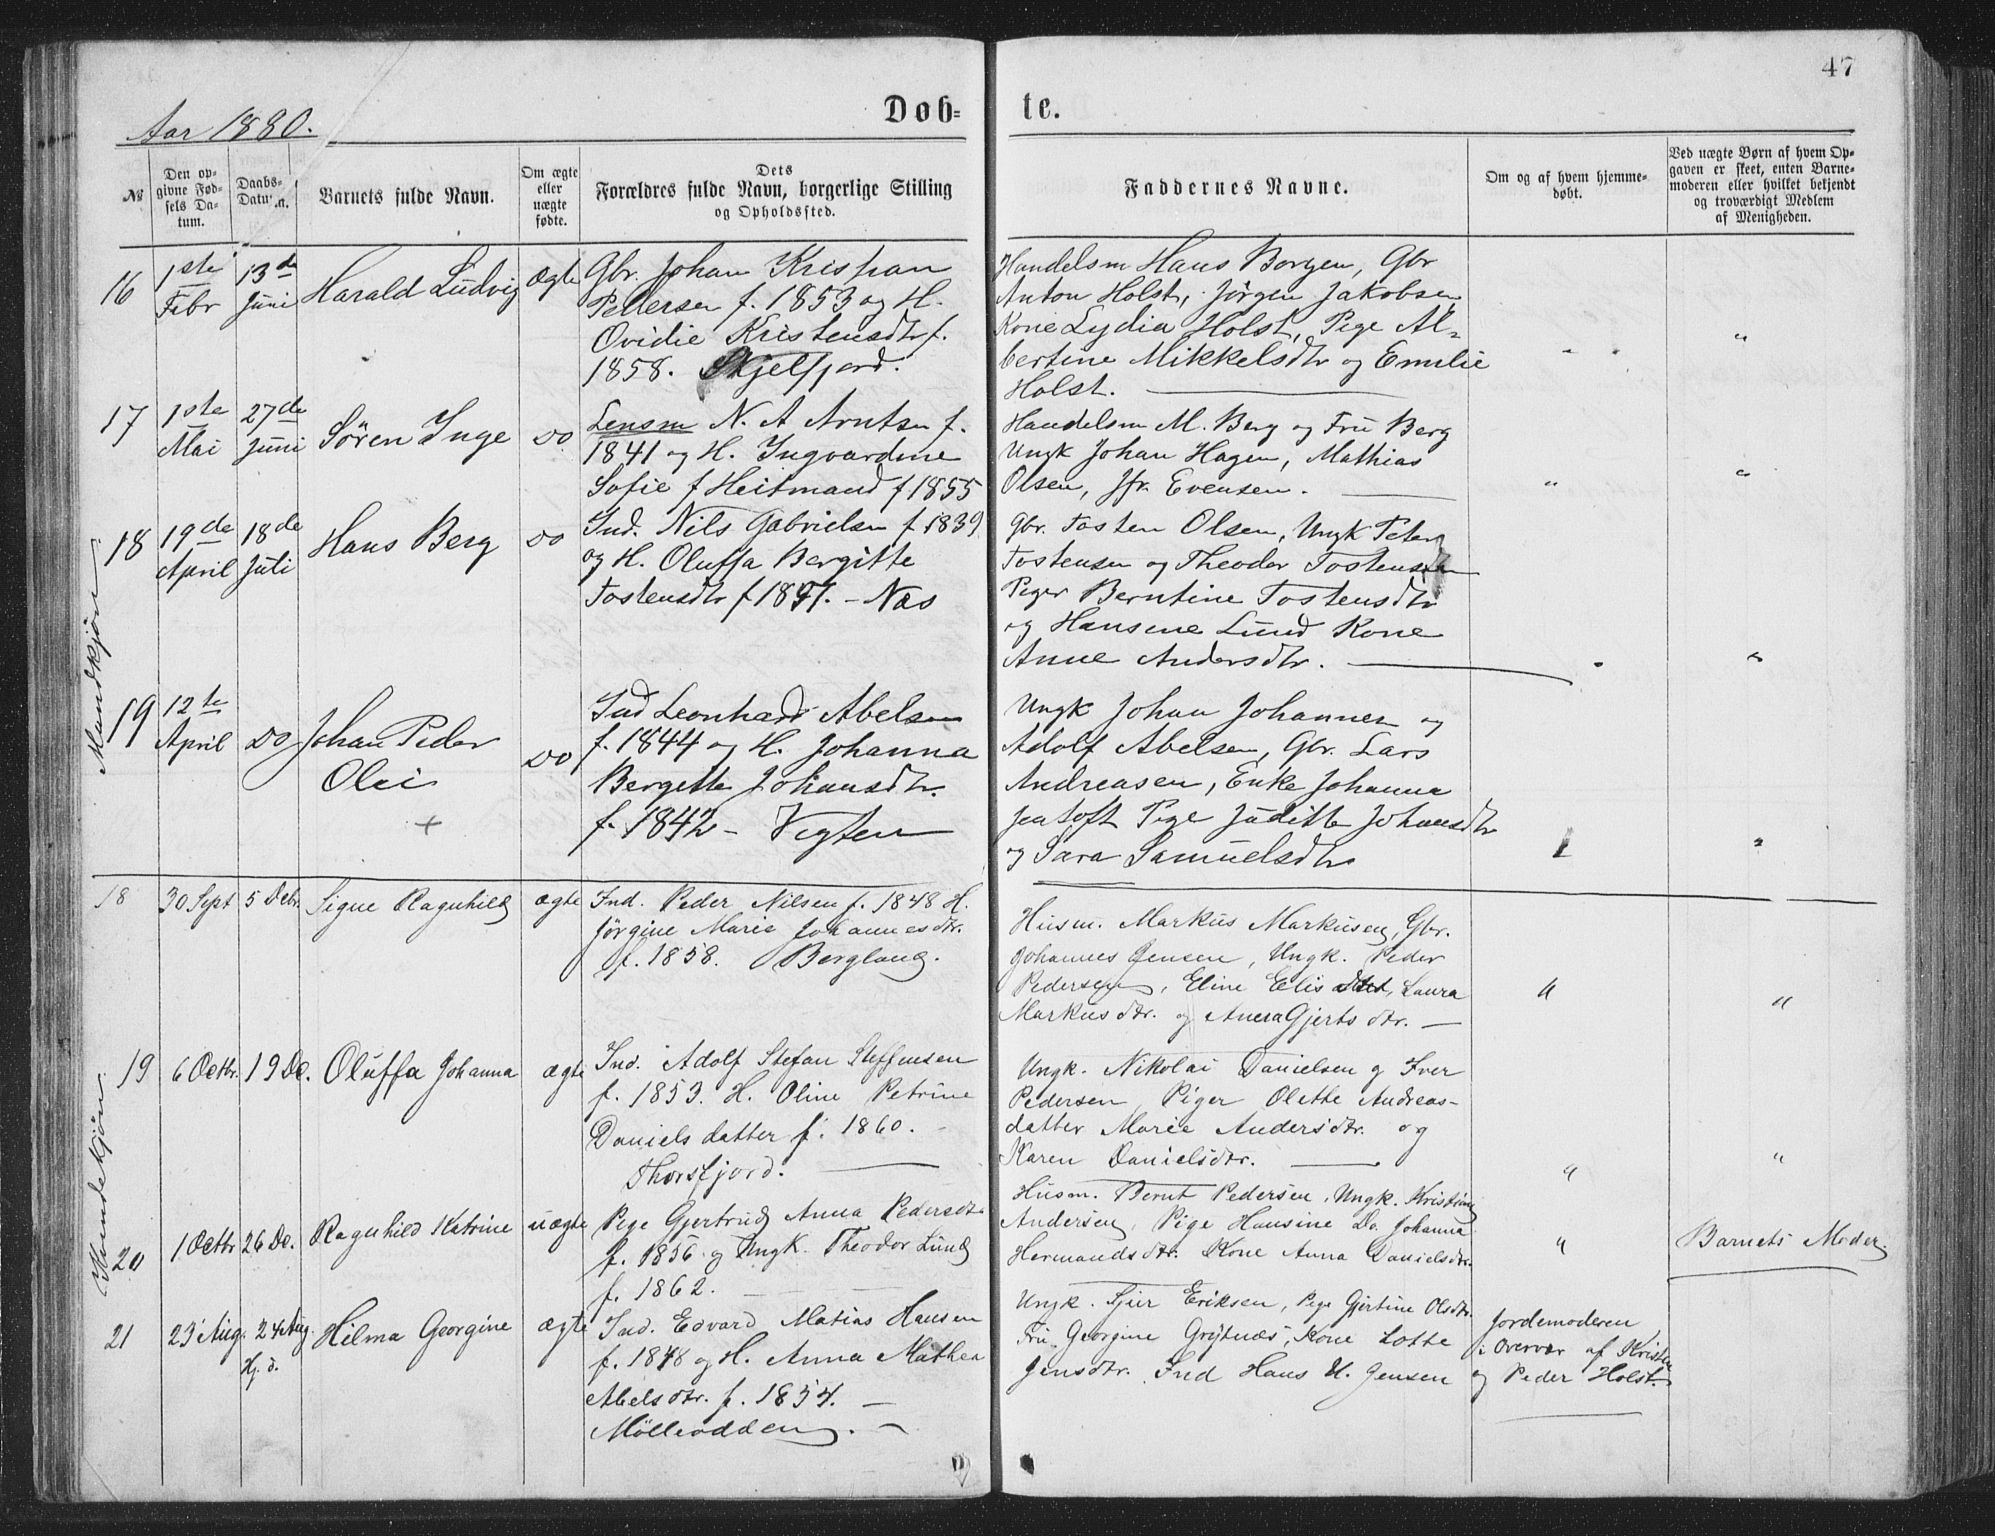 47
Aar 1880.
Døb-te.
No
Den opgivne Fødsels Datum.
Daabs-Datum.
Barnets fulde Navn.
Om ægte eller uægte fødte.
Dets Forældres fulde Navn, borgerlige Stilling og Opholdssted.
Faddernes Navne.
Om og af hvem hjemmedøbt.
Ved uægte Børn af hvem Opgaven er skeet, enten Barnemoderen eller hvilket bekjendt og troværdigt Medlem af Menigheden.
Mandkjøn.
16
1ste Febr
13de Juni
Harald Ludvig
ægte
Gbr. Johan Kristian
Pedersen f. 1853 og H.
Ovidie Kristensdtr f.
1858. Skjelfjord.
Handelsm Hans Borgen, Gbr
Anton Holst, Jørgen Jakobsen
Kone Lydia Holst, Pige Al-
bertine Mikkelsdtr og Emilie
Holst.
"
17
1ste Mai
27de Juni
Søren Inge
Do
Lensm N. A Arntsen f.
1841 og H. Ingvardine
Sofie f Heitmand f 1855
Handelsm M. Berg og Fru Berg
Ungk Johan Hagen, Mathias
Olsen, Jfr. Evensen.
"
"
18
19de April
18de Juli
Hans Berg
Do
Ind. Nils Gabrielsen f 1839
og H. Oluffa Bergitte
Tostensdtr f 1851. - Næs
Gbr. Tosten Olsen, Ungk Peter
Tostensen og Theodor Tostensen
Piger Berntine Tostensdtr
og Hansine Lund Kone
Anne Andersdtr.
"
19
12te April
Do
Johan Peder
Olei
+
Do
Ind Leonhard Abelsen
f. 1844 og H. Johanna
Bergitte Johansdtr.
f. 1842 - Vegten
Ungk Johan Johannes og
Adolf Abelsen, Gbr. Lars
Andreasen, Enke Johanna
Jentoft Pige Juditte Johansdtr
og Sara Samuelsdtr
"
Kvindekjøn.
18
30 Sept
5 Debr.
Signe Ragnhild
ægte
Ind. Peder Nilsen f. 1848 H.
Jørgine Marie Johannesdtr.
f. 1858. Bergland.
Husm. Markus Markusen, Gbr.
Johannes Jensen, Ungk. Peder
Pedersen, Eline Elisdtr, Laura
Markusdtr. og Anna Gjertsdtr.
"
"
19
6 Octbr.
19 De.
Oluffa Johanna
ægte
Ind. Adolf Stefan Steffensen
f. 1853. H. Oline Petrine
Danielsdatter f. 1860.
Thorsfjord.
Ungk. Nikolai Danielsen g Iver
Pedersen, Piger Olette Andreas-
datter Marie Andersdtr. og
Karen Danielsdtr.
"
"
20
1 Octbr
26 De.
Ragnhild Katrine
uægte
Pige Gjertrud Anna Pedersdtr
f. 1856 og Ungk. Theodor Lund
f. 1862.
Husm. Bernt Pedersen, Ungk. Kristian
Andersen, Pige Hansine Do. Johanna
Hermandsdtr. Kone Anna Danielsdtr.
"
Barnets Moder.
21
23 Aug.
24 Aug. Hj. d.
Hilma Georgine
ægte
Ind. Edvard Matias Hansen
f. 1848 og H. Anna Mathea
Abelsdtr. f. 1854.
Mølleodden.
Ungk. Sjur Eriksen, Pige Gjertine Olsdtr.
Fru Georgine Grytnæs, Kone Lotte
Jensdtr. Ind Hans H. Jensen
Jordemoderen
i Overvær af Kristen
og Peder Holst.